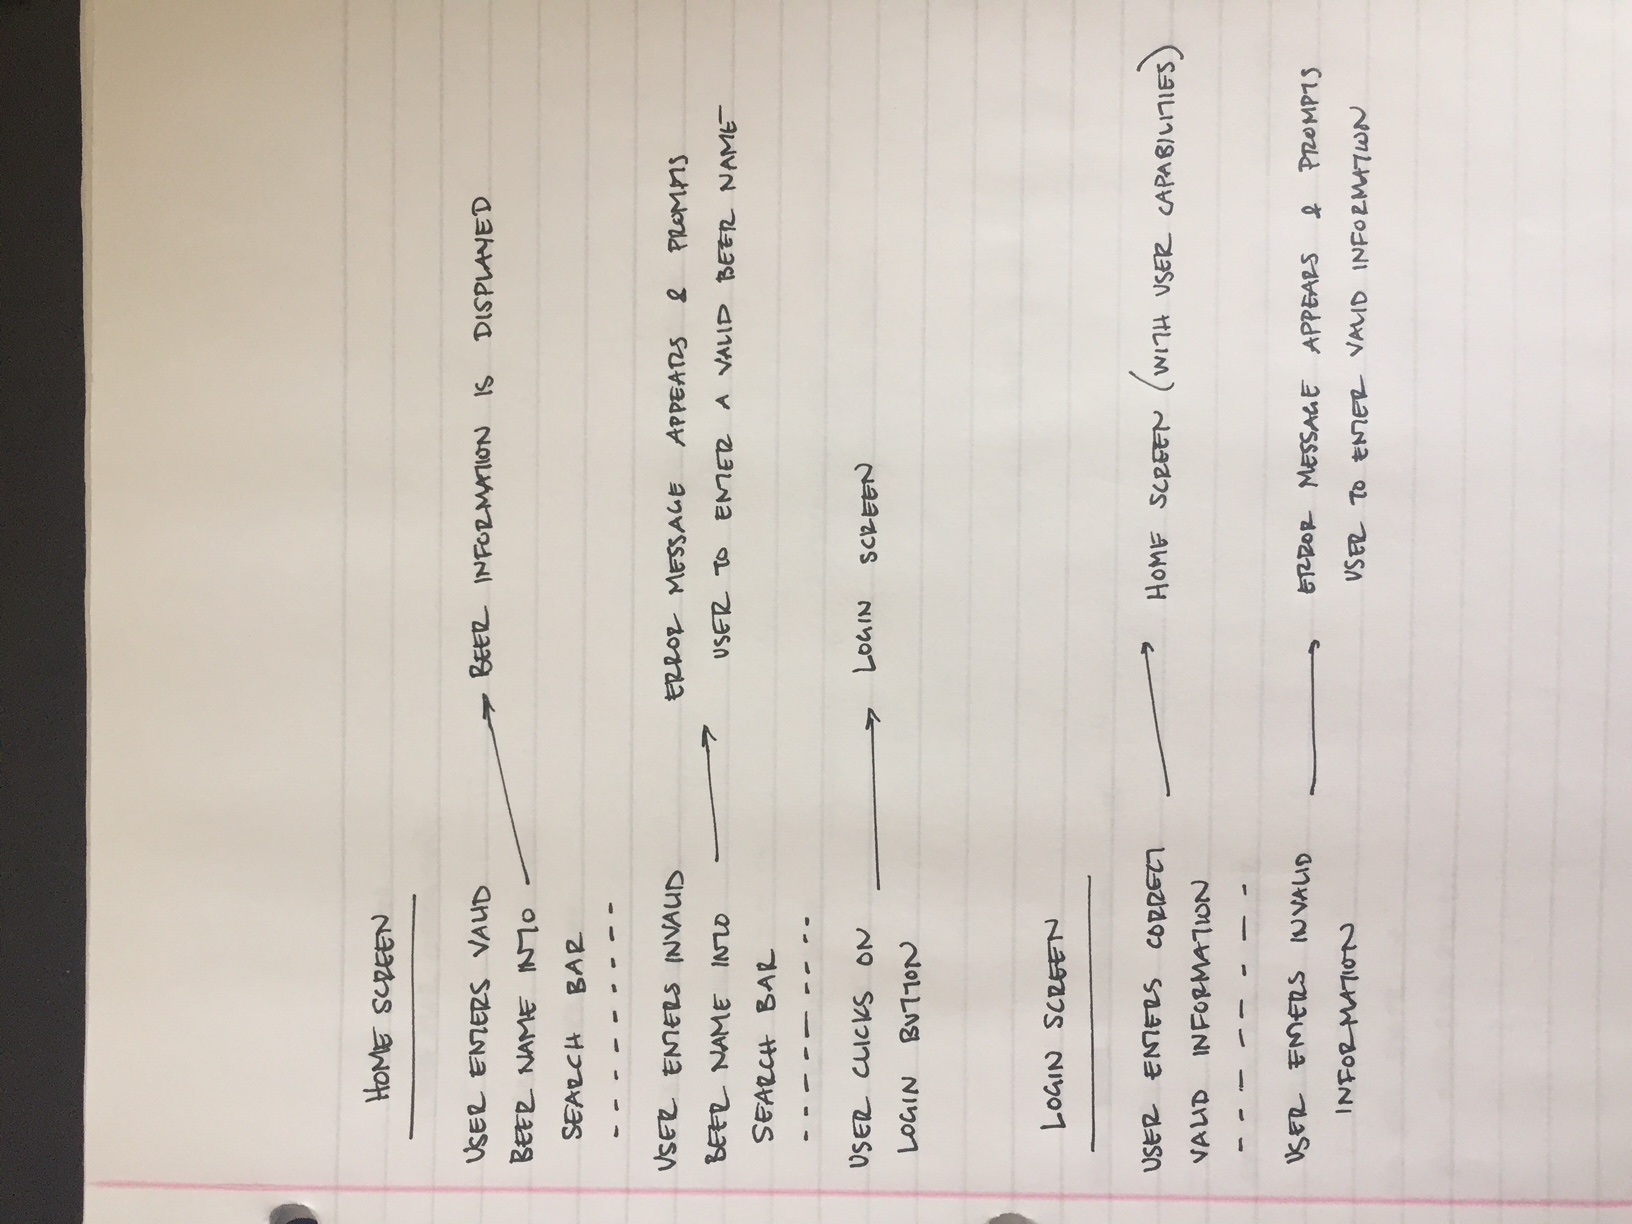 HOME SCREEN
USER ENTERS VALID
BEER NAME INTO
SEARCH BAR
BEER INFORMATION IS DISPLAYED
USER ENTERS INVALID
BEER NAME INTO
SEARCH BAR
ERROR MESSAGE APPEARS & PROMPTS
USER TO ENTER A VALID BEER NAME
USER CLICKS ON
LOGIN BUTTON
LOGIN SCREEN
LOGIN SCREEN
USER ENTERS CORRECT
VALID INFORMATION
HOME SCREEN (WITH USER CAPABILITIES)
USER ENTERS INVALID
INFORMATION
ERROR MESSAGE APPEARS & PROMPTS
USER TO ENTER VALID INFORMATION